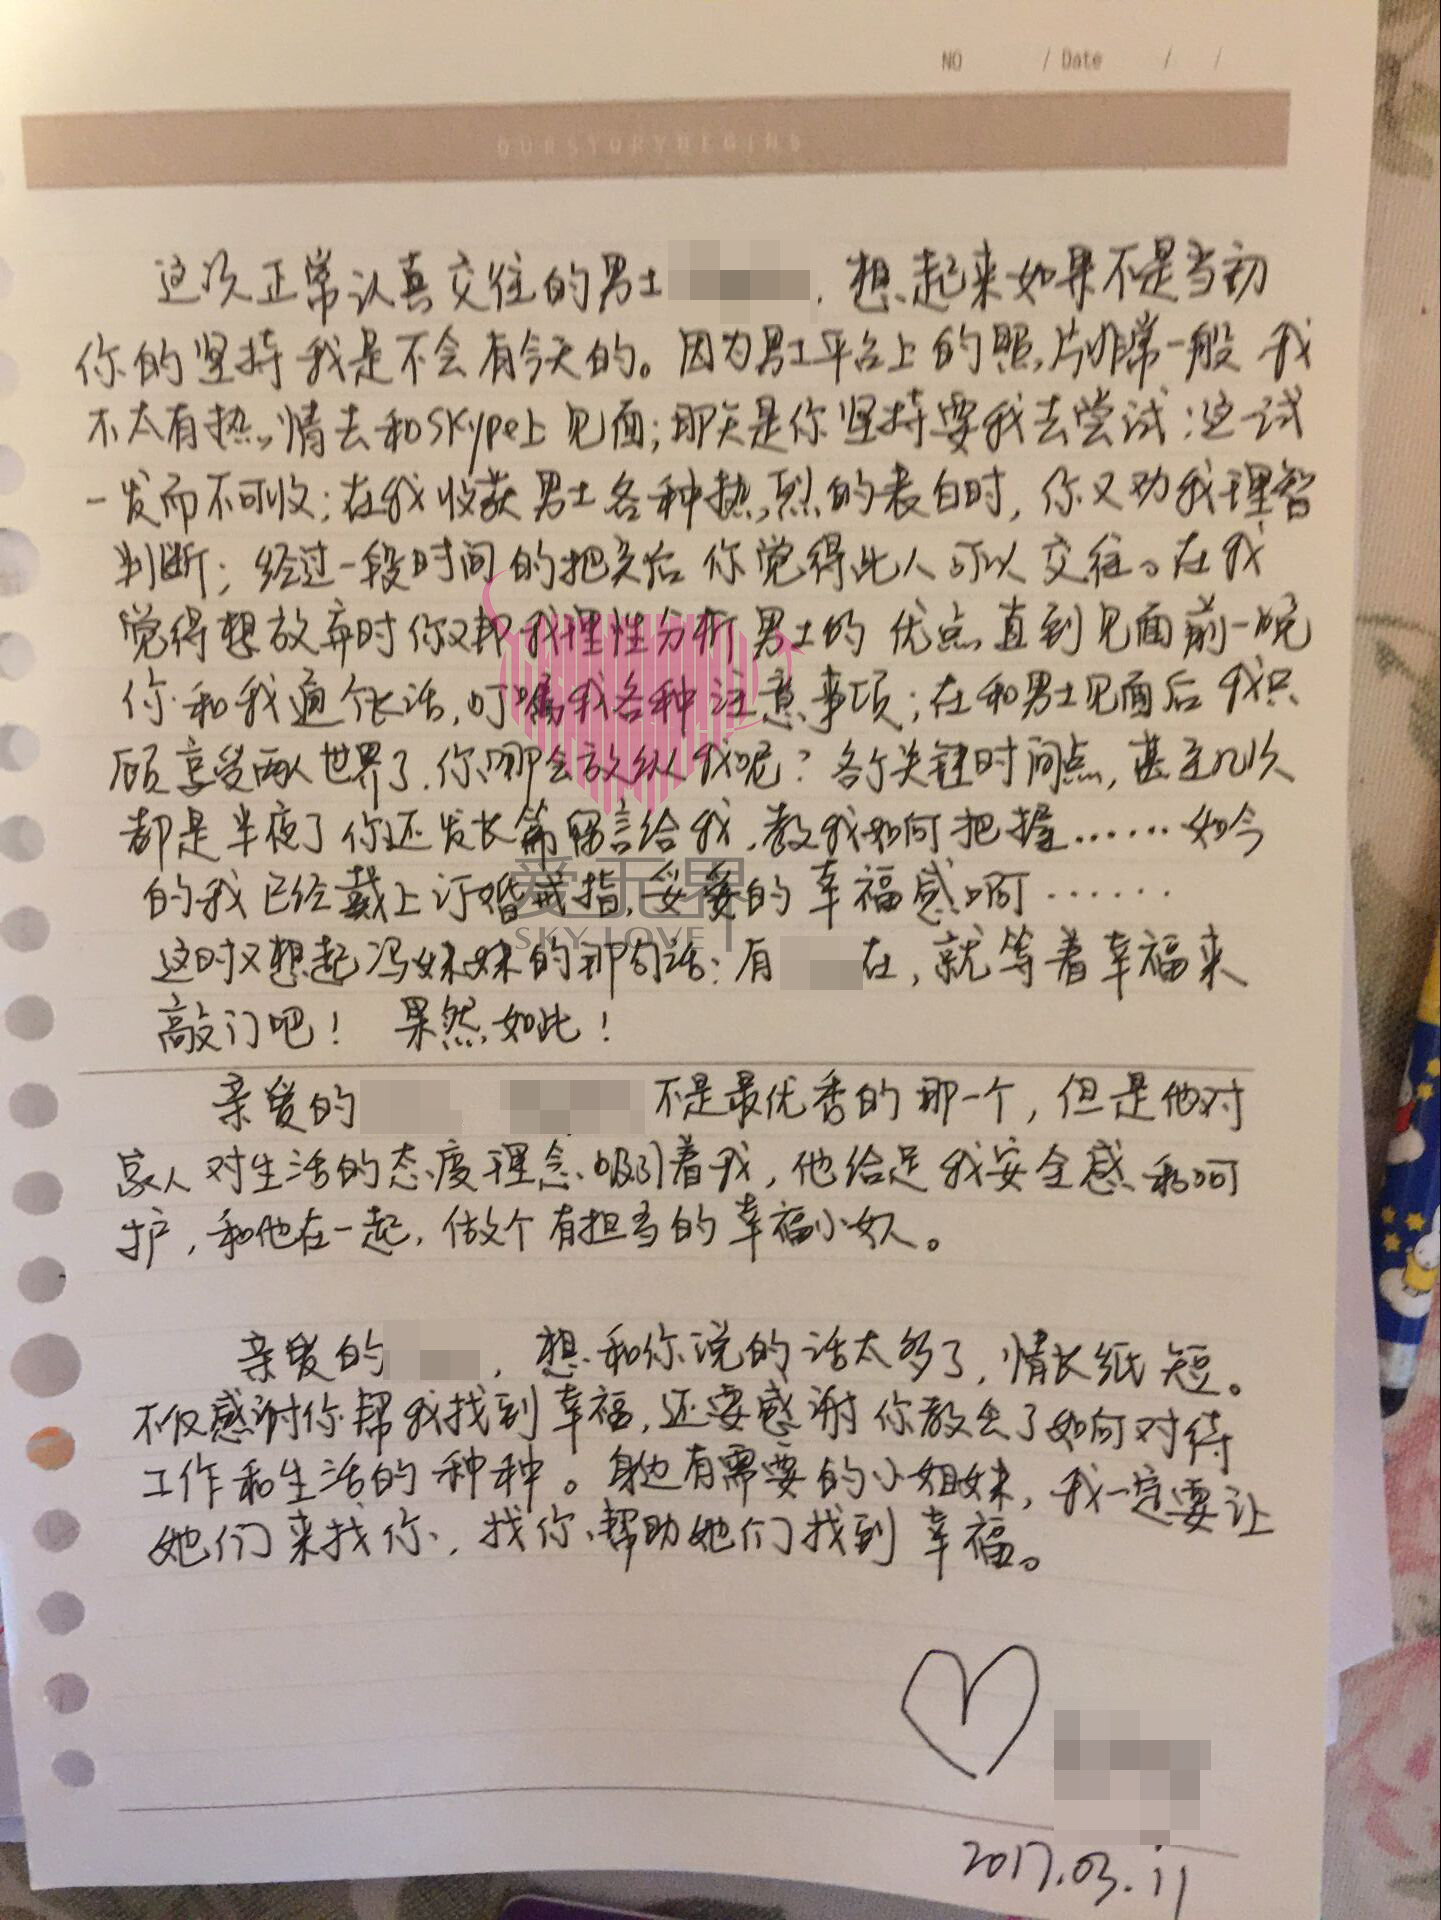 NO / Date / /
OURSTORYBEGINS
这次正常认真交往的男士 ，想起来如果不是当初
你的坚持我是不会有今天的。因为男士平台上的照片非常一般 我
不太有热情去和Skype上见面；那天是你坚持要我去尝试；这一试
一发而不可收；在我收获男士各种热烈的表白时，你又劝我理智
判断；经过一段时间的把关后 你觉得此人可以交往。在我
觉得想放弃时你又帮我理性分析男士的优点 直到见面前一晚
你和我通个长话，叮嘱我各种注意事项；在和男士见面后 我只
顾享受两人世界了，你哪会放纵我呢？各个关键时间点，甚至几次
都是半夜了你还发长篇留言给我，教我如何把握……如今
的我已经戴上订婚戒指，妥妥的幸福感啊……
爱无界
SKY LOVE
这时又想起冯妹妹的那句话：有 在，就等着幸福来
敲门吧！ 果然如此！
亲爱的 不是最优秀的那一个，但是他对
家人对生活的态度理念吸引着我，他给足我安全感和呵
护，和他在一起，做个有担当的幸福小女人。
亲爱的 ，想和你说的话太多了，情长纸短。
不仅感谢你帮我找到幸福，还要感谢你教会了如何对待
工作和生活的种种。身边有需要的小姐妹，我一定要让
她们来找你，找你帮助她们找到幸福。
2017.03.11